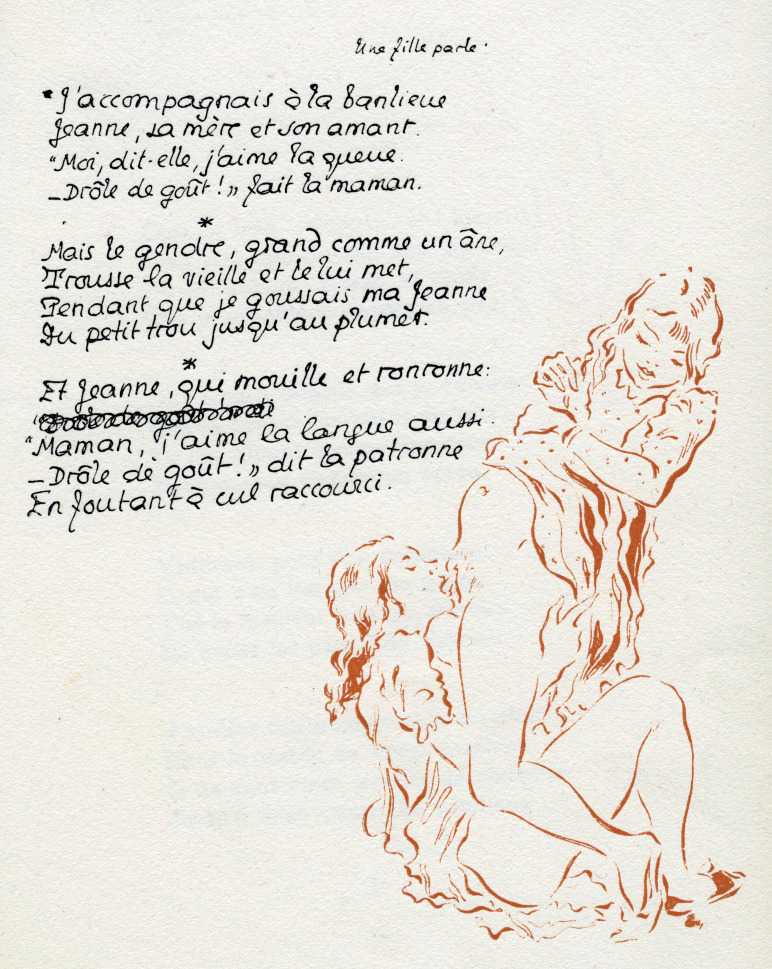 Une fille parle.
"J'accompagnais à la banlieue
Jeanne, sa mère et son amant.
"Moi, dit-elle, j'aime la queue.
— Drôle de goût ! » fait la maman.
*
Mais le gendre, grand comme un âne,
Trousse la vieille et le lui met,
Pendant que je goussais ma Jeanne
Du petit trou jusqu'au plumet.
*
Et Jeanne, qui mouille et ronronne:
"Maman, j'aime la langue aussi.
— Drôle de goût ! » dit la patronne
En foutant à cul raccourci.